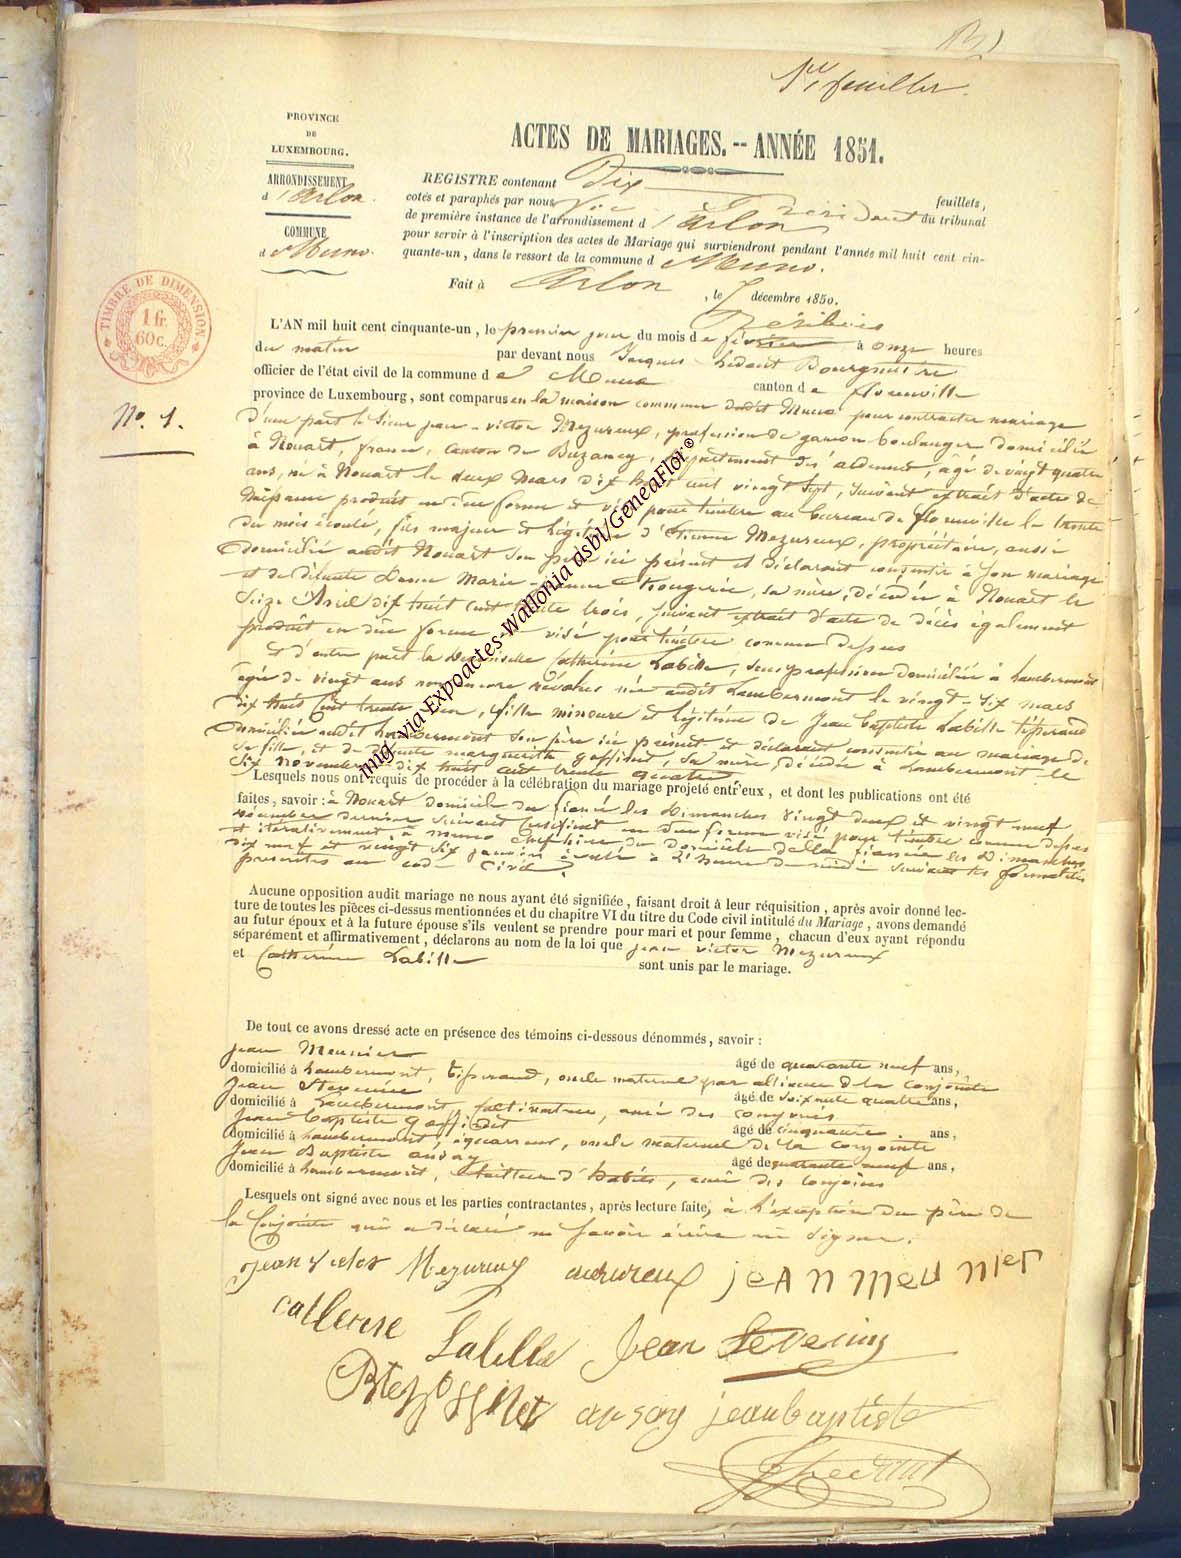 1er feuillet.
PROVINCE
DE
LUXEMBOURG.
ARRONDISSEMENT
d'Arlon.
COMMUNE
d Muno.
ACTES DE MARIAGES. -- ANNÉE 1851.
REGISTRE contenant Dix feuillets,
cotés et paraphés par nous Président du tribunal
de première instance de l'arrondissement d'Arlon
pour servir à l'inscription des actes de Mariage qui surviendront pendant l'année mil huit cent cin-
quante-un, dans le ressort de la commune d Muno.
Fait à Arlon, le 7 décembre 1850.
TIMBRE DE DIMENSION
1 fr.
60 c.
No. 1.
L'AN mil huit cent cinquante-un, le premier jour du mois de février à onze heures
du matin par devant nous Jacques Bourgmestre
officier de l'état civil de la commune de Muno canton de florenville
province de Luxembourg, sont comparus en la maison commune dudit Muno pour contracter mariage
D'une part le Sieur jean-victor Mezureux, profession de garçon boulanger domicilié
à Nouart, france, canton de Buzancy, département des ardennes, âgé de vingt quatre
ans, né à Nouart le deux Mars dix huit cent vingt sept, suivant extrait d'acte de
Naissance produit en due forme et visé pour timbre au bureau de florenville le trente
du mois écoulé, fils majeur et légitime d'Etienne Mezureux, propriétaire, aussi
domicilié audit Nouart son père ici présent et déclarant consentir à son mariage
et de défunte Dame Marie- sa mère, décédée à Nouart le
Seize Avril dix huit cent trente trois, suivant extrait d'acte de décès également
produit en due forme et visé pour timbre comme dessus
Et d'autre part la Demoiselle Catherine Labille, sans profession domiciliée à Lambermont
âgée de vingt ans non encore révolus née audit Lambermont le vingt-six mars
dix huit cent trente un, fille mineure et légitime de Jean Baptiste Labille tisserand
domicilié audit Lambermont son père ici présent et déclarant consentir au mariage de
sa fille, et de défunte marguerite goffinet, sa mère, décédée à Lambermont le
six novembre dix huit cent trente quatre
Lesquels nous ont requis de procéder à la célébration du mariage projeté entr'eux, et dont les publications ont été
faites, savoir: à Nouart domicile du fiancé les Dimanches vingt deux et vingt neuf
décembre dernier suivant certificat en due forme visé pour timbre comme dessus
et itérativement à muno chef lieu du domicile de la fiancée les Dimanches
dix neuf et vingt six janvier écoulé à l'heure de midi suivant les formalités
prescrites au code Civil.
Aucune opposition audit mariage ne nous ayant été signifiée, faisant droit à leur réquisition, après avoir donné lec-
ture de toutes les pièces ci-dessus mentionnées et du chapitre VI du titre du Code civil intitulé du Mariage, avons demandé
au futur époux et à la future épouse s'ils veulent se prendre pour mari et pour femme, chacun d'eux ayant répondu
séparément et affirmativement, déclarons au nom de la loi que jean victor Mezureux
et Catherine Labille sont unis par le mariage.
De tout ce avons dressé acte en présence des témoins ci-dessous dénommés, savoir:
jean Meunier âgé de quarante neuf ans,
domicilié à Lambermont, tisserand, oncle maternel par alliance de la conjointe
jean Severin âgé de soixante quatre ans,
domicilié à Lambermont, cultivateur, ami des conjoints
jean baptiste goffinet âgé de cinquante ans,
domicilié à Lambermont, équarreur, oncle maternel de la conjointe
jean Baptiste ansay âgé de quarante neuf ans,
domicilié à Lambermont, tailleur d'habits, ami des conjoints
Lesquels ont signé avec nous et les parties contractantes, après lecture faite, à l'exception du père de
la conjointe qui a déclaré ne savoir écrire ni signer.
jean victor Mezureux mezureux jeAn meunier
catherine Labille Jean Severin
Bte goffinet ansay jeanbaptiste
img via Expoactes-Wallonia asbl/GeneaFlor©